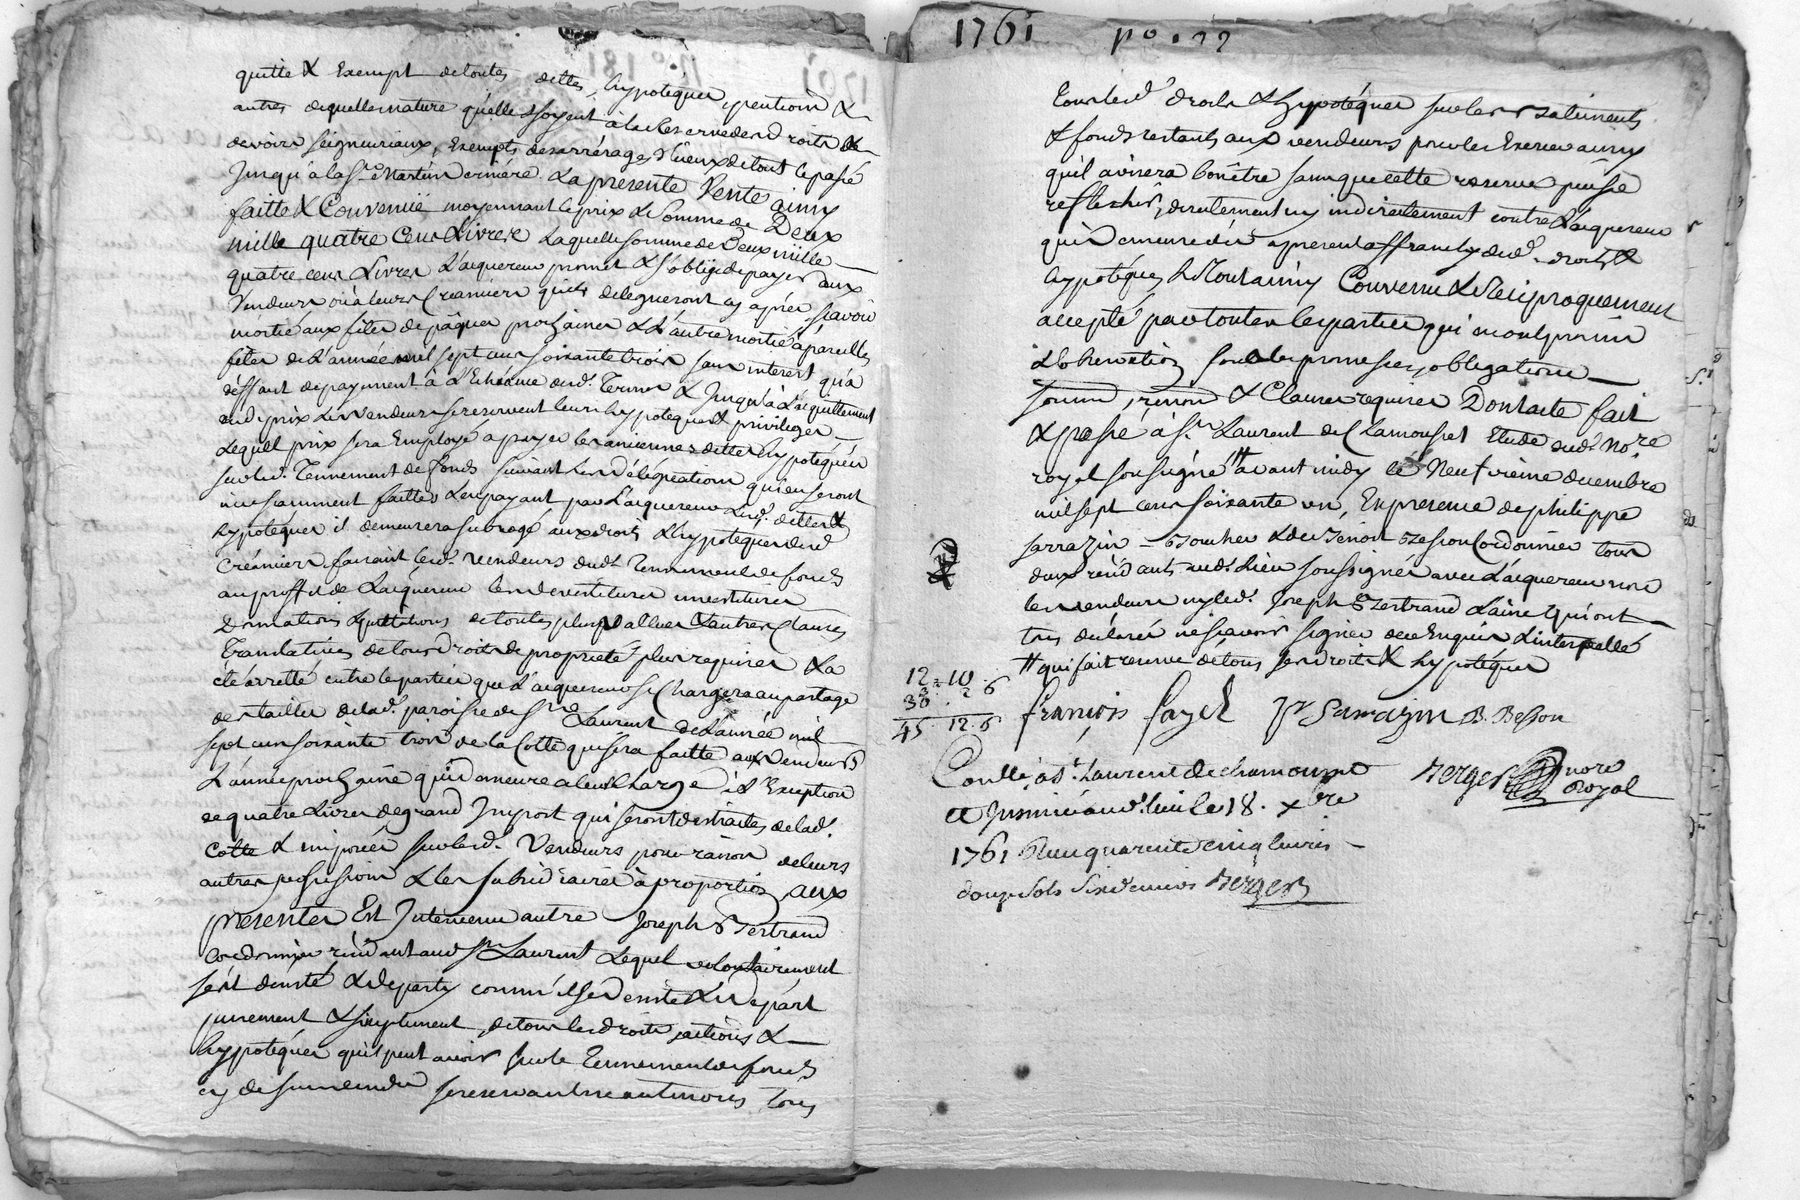 quitte & Exempt de toutes dettes, hypotéques, pentions &
autres dequelle nature qu'elles soyent à la Reserve desd droits &
devoirs seigneuriaux, Exempts des arrérages d'iceux de tout le passé
Jusqu'à la St Martin derniére. La presente Vente ainsy
faitte & Convenüe moyennant le prix & Somme de Deux
mille quatre Cens Livres Laquelle somme de Deux mille
quatre cens Livres L'acquereur promet & s'oblige de payer aux
Vendeurs ou à leurs Creanciers qu'ils delegueront cy aprés sçavoir
moitié aux fêtes de pâques prochaines & L'autre moitié à pareilles
fêtes de L'année mil sept cens soixante trois sans interest qu'a
déffaut de payement à L'Echéance desd. Termes & Jusqu'à L'acquittement
dud prix Les Vendeurs se reservent leurs hypoteques & privileges
Lequel prix sera Employé a payer les anciennes dettes hypotequées
sur led. Tennement de fonds suivant Les délégations qui en seront
incessamment faittes & en payant par L'acquereur Lesd. dettes &
hypotéques il demeurera subrogé aux droits & hypotéques desd
Créanciers faisant lesd. vendeurs dud. Tennement de fonds
au proffit de L'acquereur les devestitures investitures
Donnations quittations de toutes plus vallues & autres Clauses
Translatives de tous droits de propriété plus requises & a
été arretté entre les parties que L'acquereur se Chargera au partage
des tailles de lad. paroisse de St Laurent de L'année mil
sept cens soixante trois de la Cotte qui sera faitte aux Vendeurs
L'année prochaine qui demeure a leur Charge à L'Exeption
de quatre Livres de grand Import qui seront distraites de lad.
Cotte & imposées sur lesd. Vendeurs pour raison de leurs
autres possessions & les subsidiaires à proportion aux
presentes Est Intervenu autre Joseph Bertrand
Cordonnier résidant aud St Laurent Lequel volontairement
s'est desisté & departy comme il se desiste & départ
purement & simplement de tous les droits, actions &
hypotéques qu'il peut avoir sur le Tennement de fonds
cy dessus vendu se reservant neantmoins tous
1761
Tous lesd droits & hypotéques sur les Batiments
& fonds restants aux vendeurs pour les Exercer ainsy
qu'il avisera bon être sans que cette reserve puisse
reflechir, directement ny indirectement contre L'acquereur
qui demeure dés apresent affranchy desd. droits &
hypotéques Le Tout ainsy Convenu & Reciproquement
accepté par toutes les parties qui en ont promis
L'observation sous les promesses, obligations
soumi, renon & Clauses requises Dont acte fait
& passé à St Laurent de Chamousset Etude dud. Nore
royal soussigné avant midy le Neufvième decembre
mil sept cens soixante un, En presence de philippe
sarrazin Boucher & de Benoit Besson Cordonnier tous
deux résidants aud. Lieu soussignés avec L'acquereur non
les vendeurs ny led. Joseph Bertrand L'ainé qui ont
tous declaré ne sçavoir signer de ce Enquis & interpellé
# qui fait reserve de tous ses droits & hypotéques
12. 10.
33. 2. 6
45. 12. 6
françois fayet Pr Sarrazin B. Besson
Berger nore
Royal
Conllé à St Laurent de chamousset
et Insinué aud. lieu le 18. xbre
1761 Receu quarente cinq livres
douze sols six deniers Berger